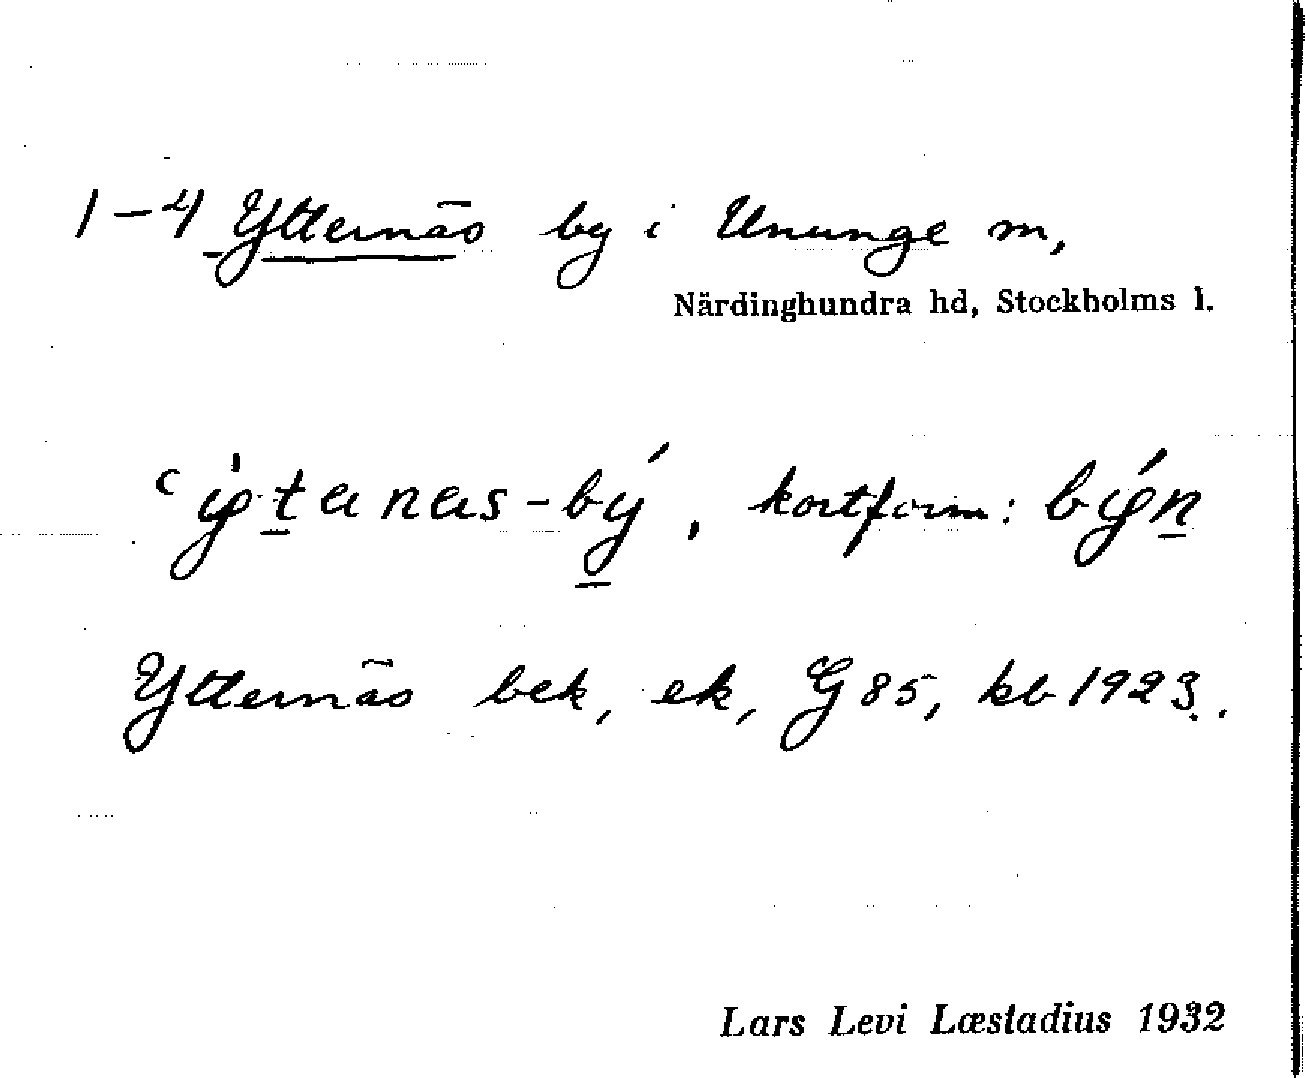 1–4 Ytternäs by i Ununge sn,
Närdinghundra hd, Stockholms l.
kortform: býn
Ytternäs bek, ek, G 85, kb 1923.
Lars Levi Læstadius 1932